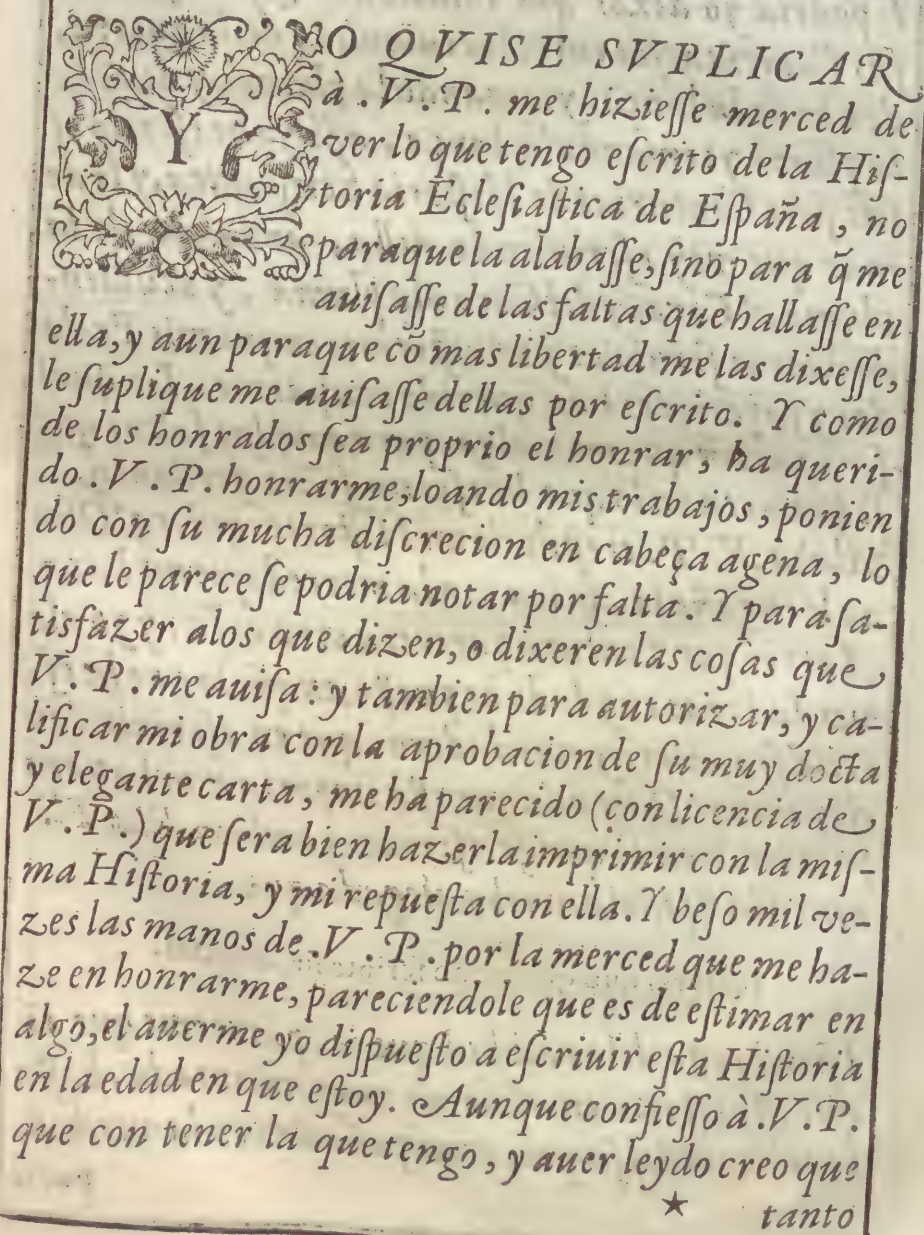 YO QVISE SVPLICAR
à .V.P. me hizieſſe merced de
ver lo que tengo eſcrito de la Hiſ-
toria Ecleſiaſtica de Eſpaña, no
paraque la alabaſſe, ſino para q̃ me
auiſaſſe de las faltas que hallaſſe en
ella, y aun paraque cõ mas libertad me las dixeſſe,
le ſuplique me auiſaſſe dellas por eſcrito. Y como
de los honrados ſea proprio el honrar, ha queri-
do .V.P. honrarme, loando mis trabajos, ponien
do con ſu mucha diſcrecion en cabeça agena, lo
que le parece ſe podria notar por falta. Y para ſa-
tisfazer alos que dizen, o dixeren las coſas que
V.P. me auiſa: y tambien para autorizar, y ca-
lificar mi obra con la aprobacion de ſu muy docta
y elegante carta, me ha parecido (con licencia de
V.P.) que ſera bien hazerla imprimir con la miſ-
ma Hiſtoria, y mi repueſta con ella. Y beſo mil ve-
zes las manos de .V.P. por la merced que me ha-
ze en honrarme, pareciendole que es de eſtimar en
algo, el auerme yo diſpueſto a eſcriuir eſta Hiſtoria
en la edad en que eſtoy. Aunque confieſſo à .V.P.
que con tener la que tengo, y auer leydo creo que
★ tanto